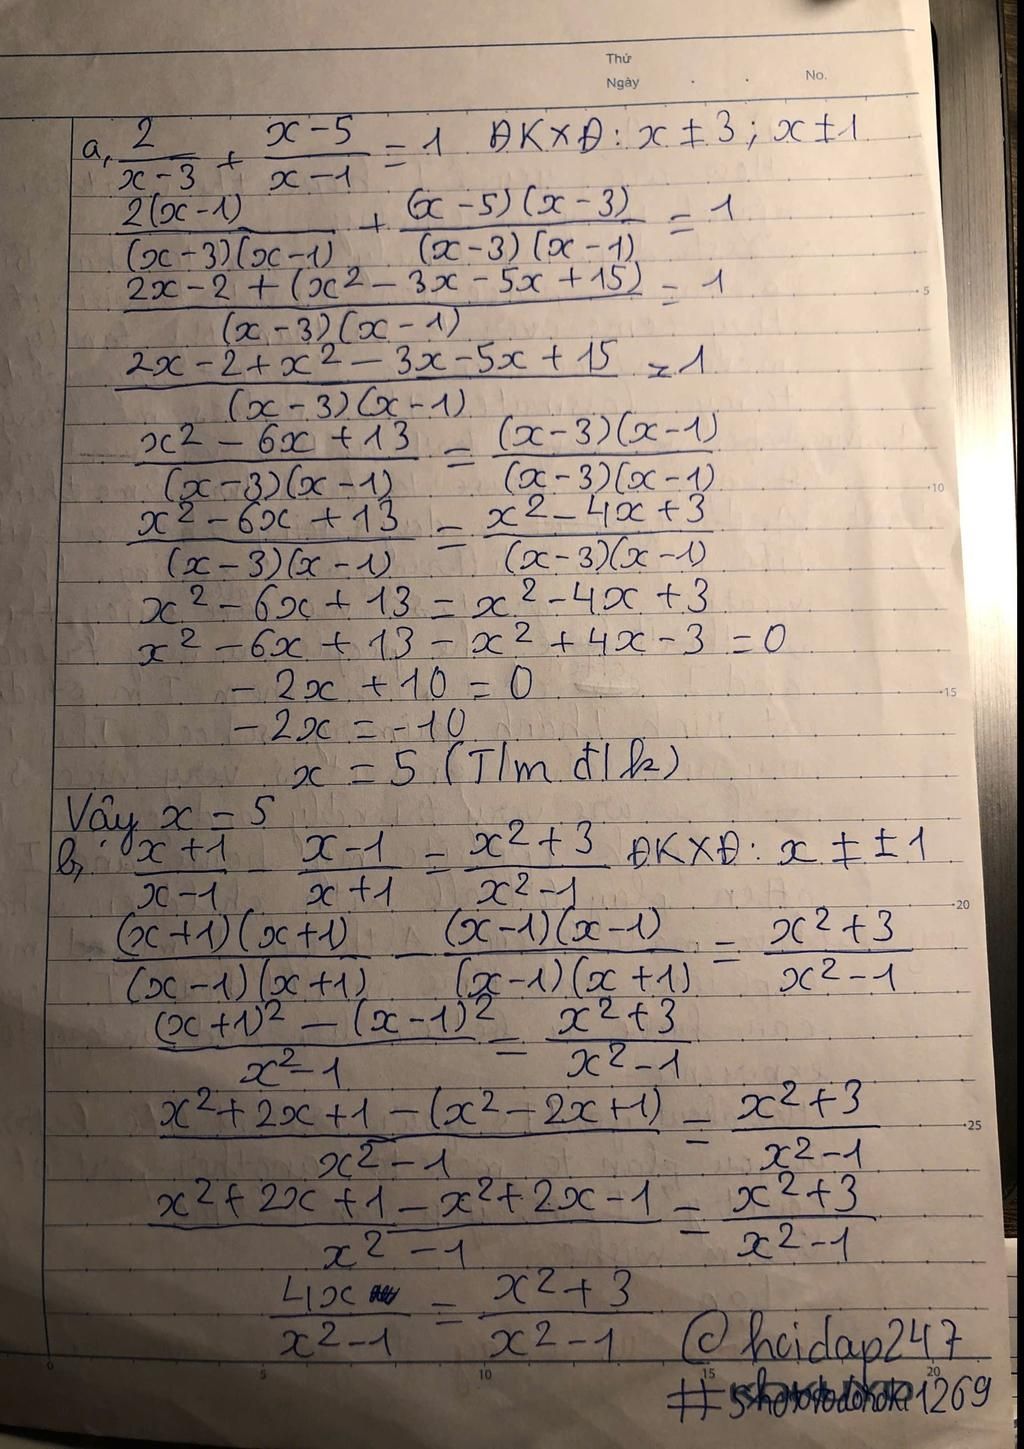 Thứ
Ngày . . No.
a, 2/(x-3) + (x-5)/(x-1) = 1 ĐKXĐ: x ≠ 3; x ≠ 1
2(x-1)/((x-3)(x-1)) + (x-5)(x-3)/((x-3)(x-1)) = 1
(2x-2+(x²-3x-5x+15))/((x-3)(x-1)) = 1
(2x-2+x²-3x-5x+15)/((x-3)(x-1)) = 1
(x²-6x+13)/((x-3)(x-1)) = (x-3)(x-1)/((x-3)(x-1))
(x²-6x+13)/((x-3)(x-1)) = (x²-4x+3)/((x-3)(x-1))
x²-6x+13 = x²-4x+3
x²-6x+13-x²+4x-3 = 0
-2x+10 = 0
-2x = -10
x = 5 (T/m đ/k)
Vậy x = 5
b, (x+1)/(x-1) - (x-1)/(x+1) = (x²+3)/(x²-1) ĐKXĐ: x ≠ ±1
(x+1)(x+1)/((x-1)(x+1)) - (x-1)(x-1)/((x-1)(x+1)) = (x²+3)/(x²-1)
((x+1)²-(x-1)²)/(x²-1) = (x²+3)/(x²-1)
(x²+2x+1-(x²-2x+1))/(x²-1) = (x²+3)/(x²-1)
(x²+2x+1-x²+2x-1)/(x²-1) = (x²+3)/(x²-1)
4x/(x²-1) = (x²+3)/(x²-1)
@hoidap247
5
10
15
20
25
0 5 10 15 20